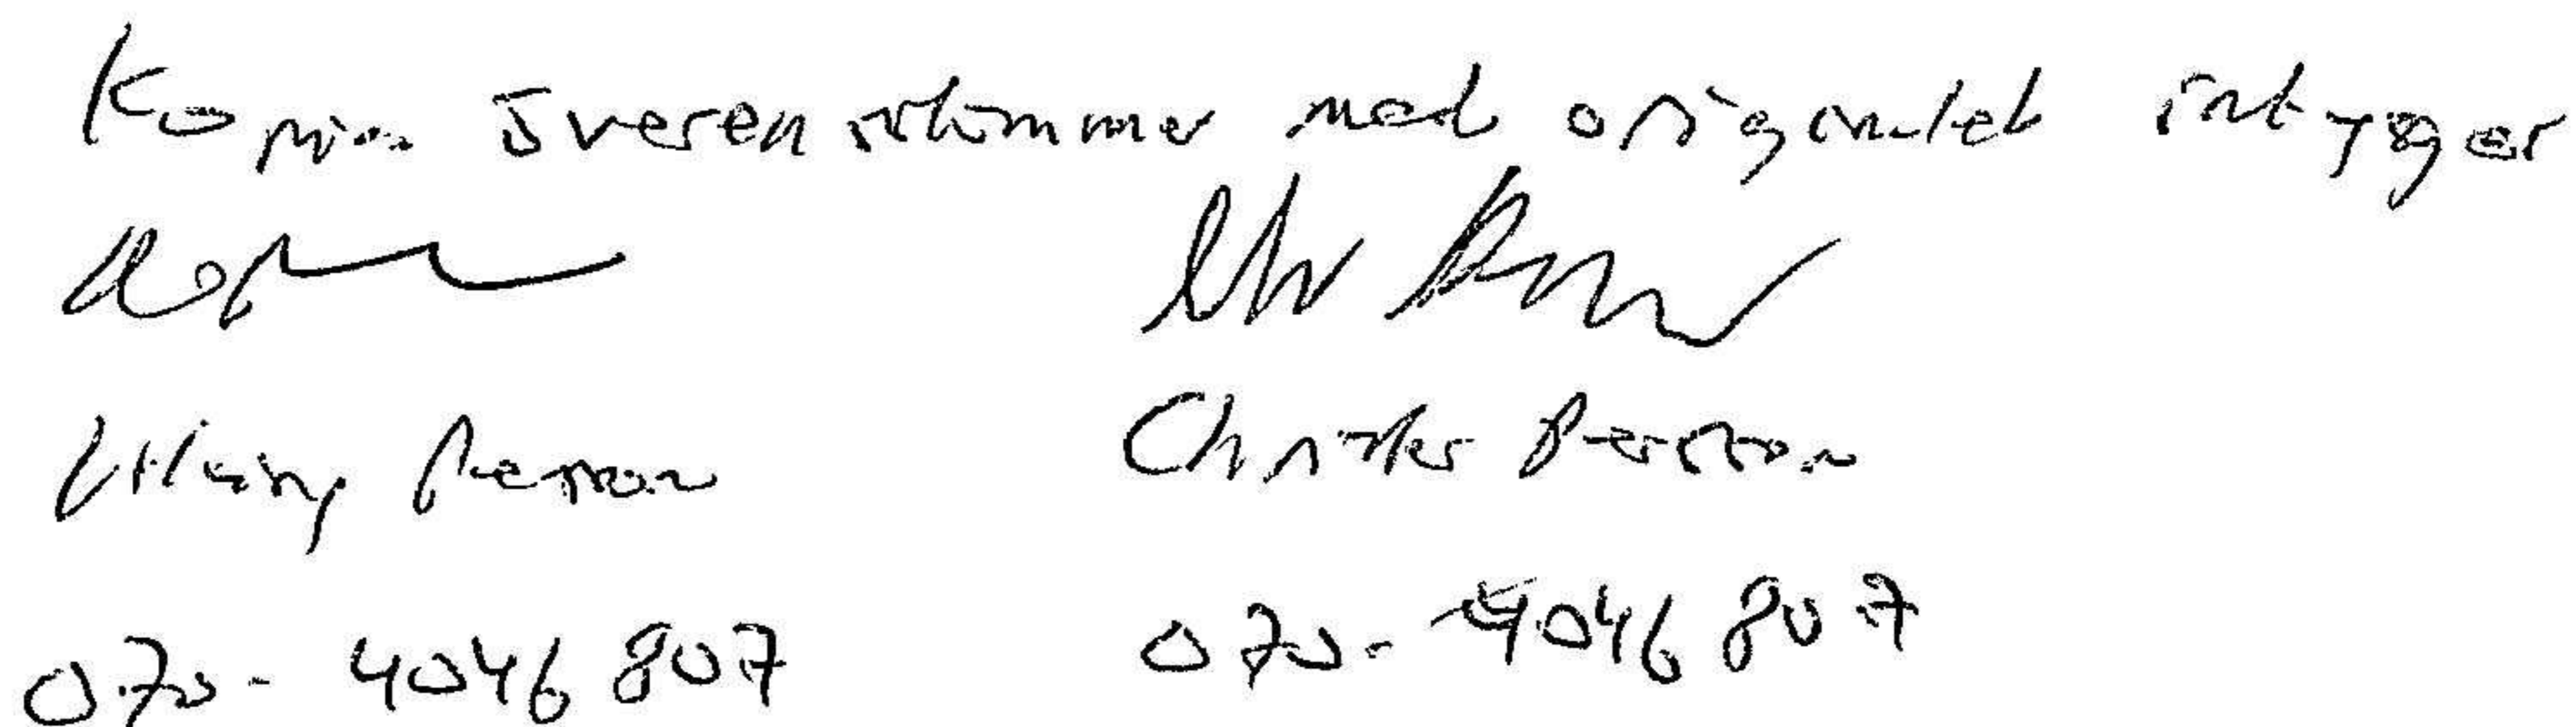 Kopian överensstämmer med originalet intygar
Persson Christer Persson
070-4046807 070-4046807